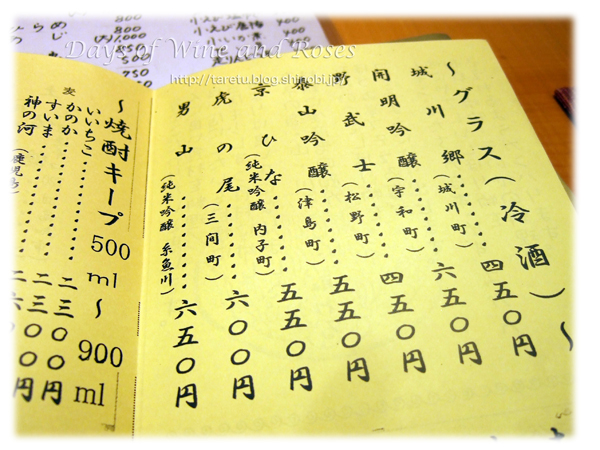 Days of Wine and Roses
http://taretu.blog.shinobi.jp/
〜グラス(冷酒)〜
城川郷……(城川町) 四五〇円
開明吟醸……(宇和町) 六五〇円
野武士……(松野町) 四〇〇円
泰山吟醸……(津島町) 五五〇円
京ひな(純米吟醸 内子町) 五五〇円
虎の尾……(三間町) 六〇〇円
男山……(純米吟醸 糸魚川) 六五〇円
〜焼酎キープ 500ml〜900ml
いいちこ……二三〇〇円
かのか……二三〇〇円
すいま
神の河
800
850
750
400